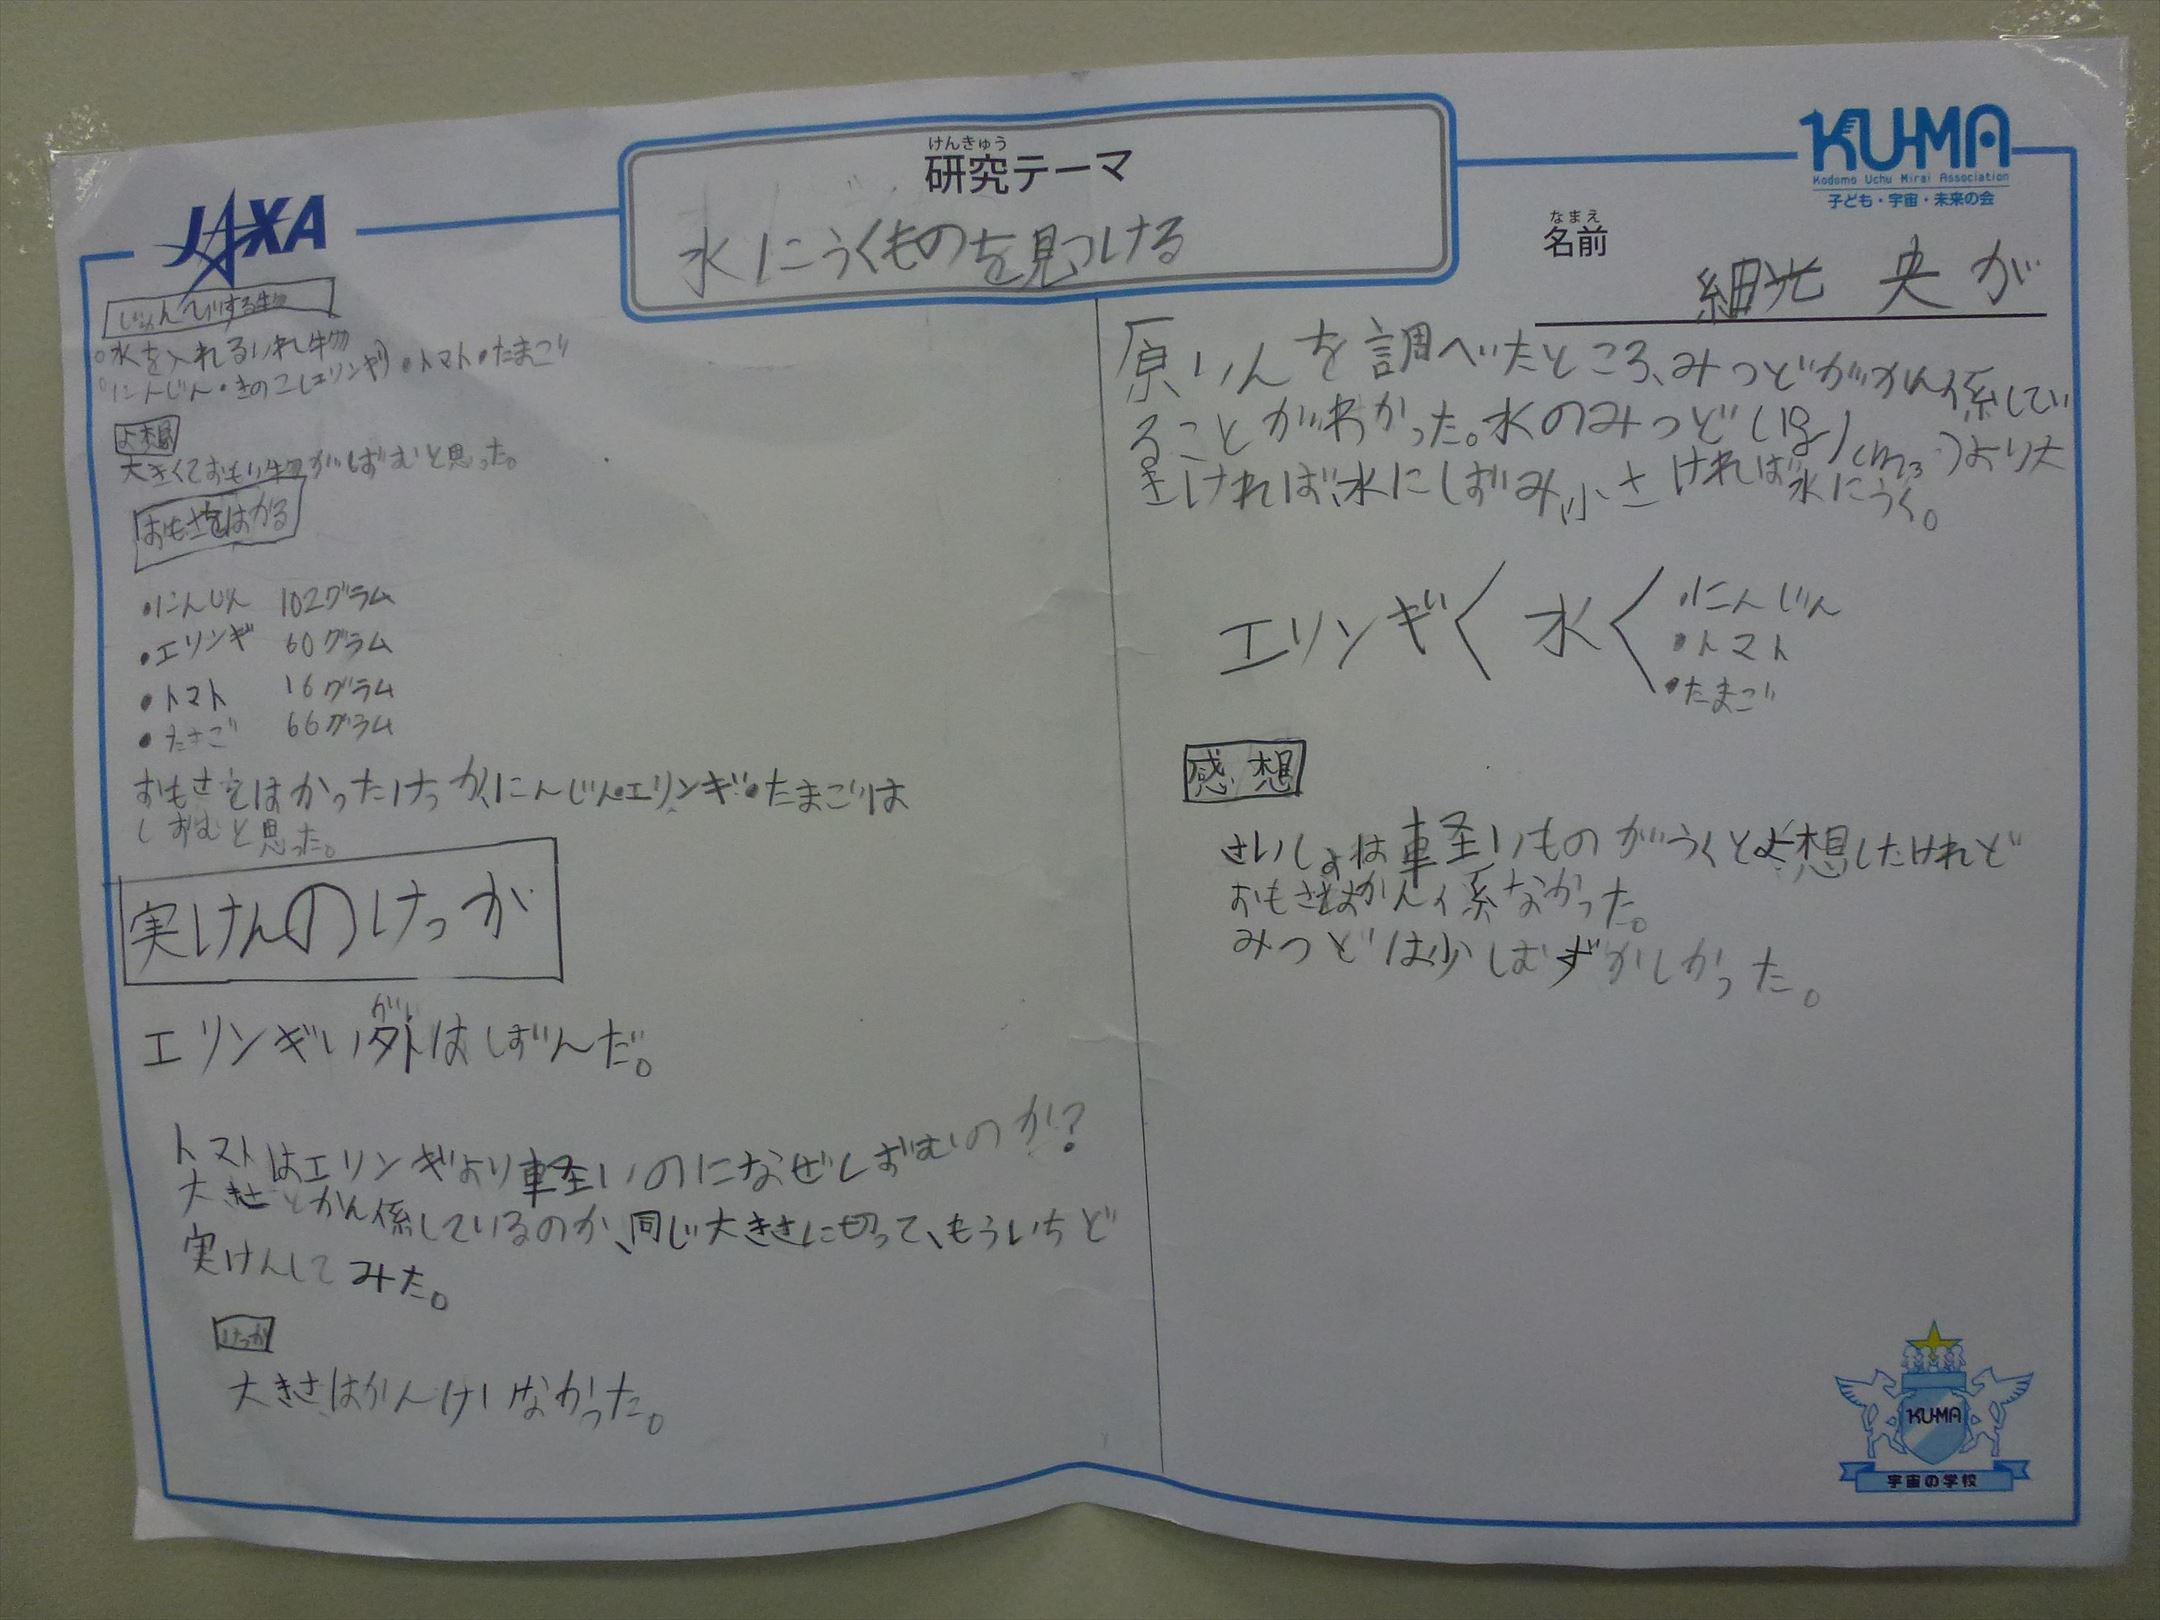 JAXA
けんきゅう
研究テーマ
水にうくものを見つける
KU-MA
Kodomo Uchu Mirai Association
子ども・宇宙・未来の会
なまえ
名前
細光 央が
じゅんびする物
・水を入れるいれ物
・にんじん・きのこ(エリンギ)・トマト・たまご
よ想
大きくておもい物がしずむと思った。
おもさをはかる
・にんじん 102グラム
・エリンギ 60グラム
・トマト 16グラム
・たまご 66グラム
おもさをはかったけっか、にんじん・エリンギ・たまごは
しずむと思った。
実けんのけっか
がい
エリンギい外はしずんだ。
トマトはエリンギより軽いのになぜしずむのか?
大きさとかん係しているのか、同じ大きさに切って、もういちど
実けんしてみた。
けっか
大きさはかんけいなかった。
原いんを調べたところ、みつどがかん係してい
ることがわかった。水のみつど(1g/cm3)より大
きければ、水にしずみ、小さければ水にうく。
エリンギ<水<・にんじん
・トマト
・たまご
感想
さいしょは軽いものがうくとよ想したけれど
おもさはかん係なかった。
みつどは少しむずかしかった。
KU-MA
宇宙の学校